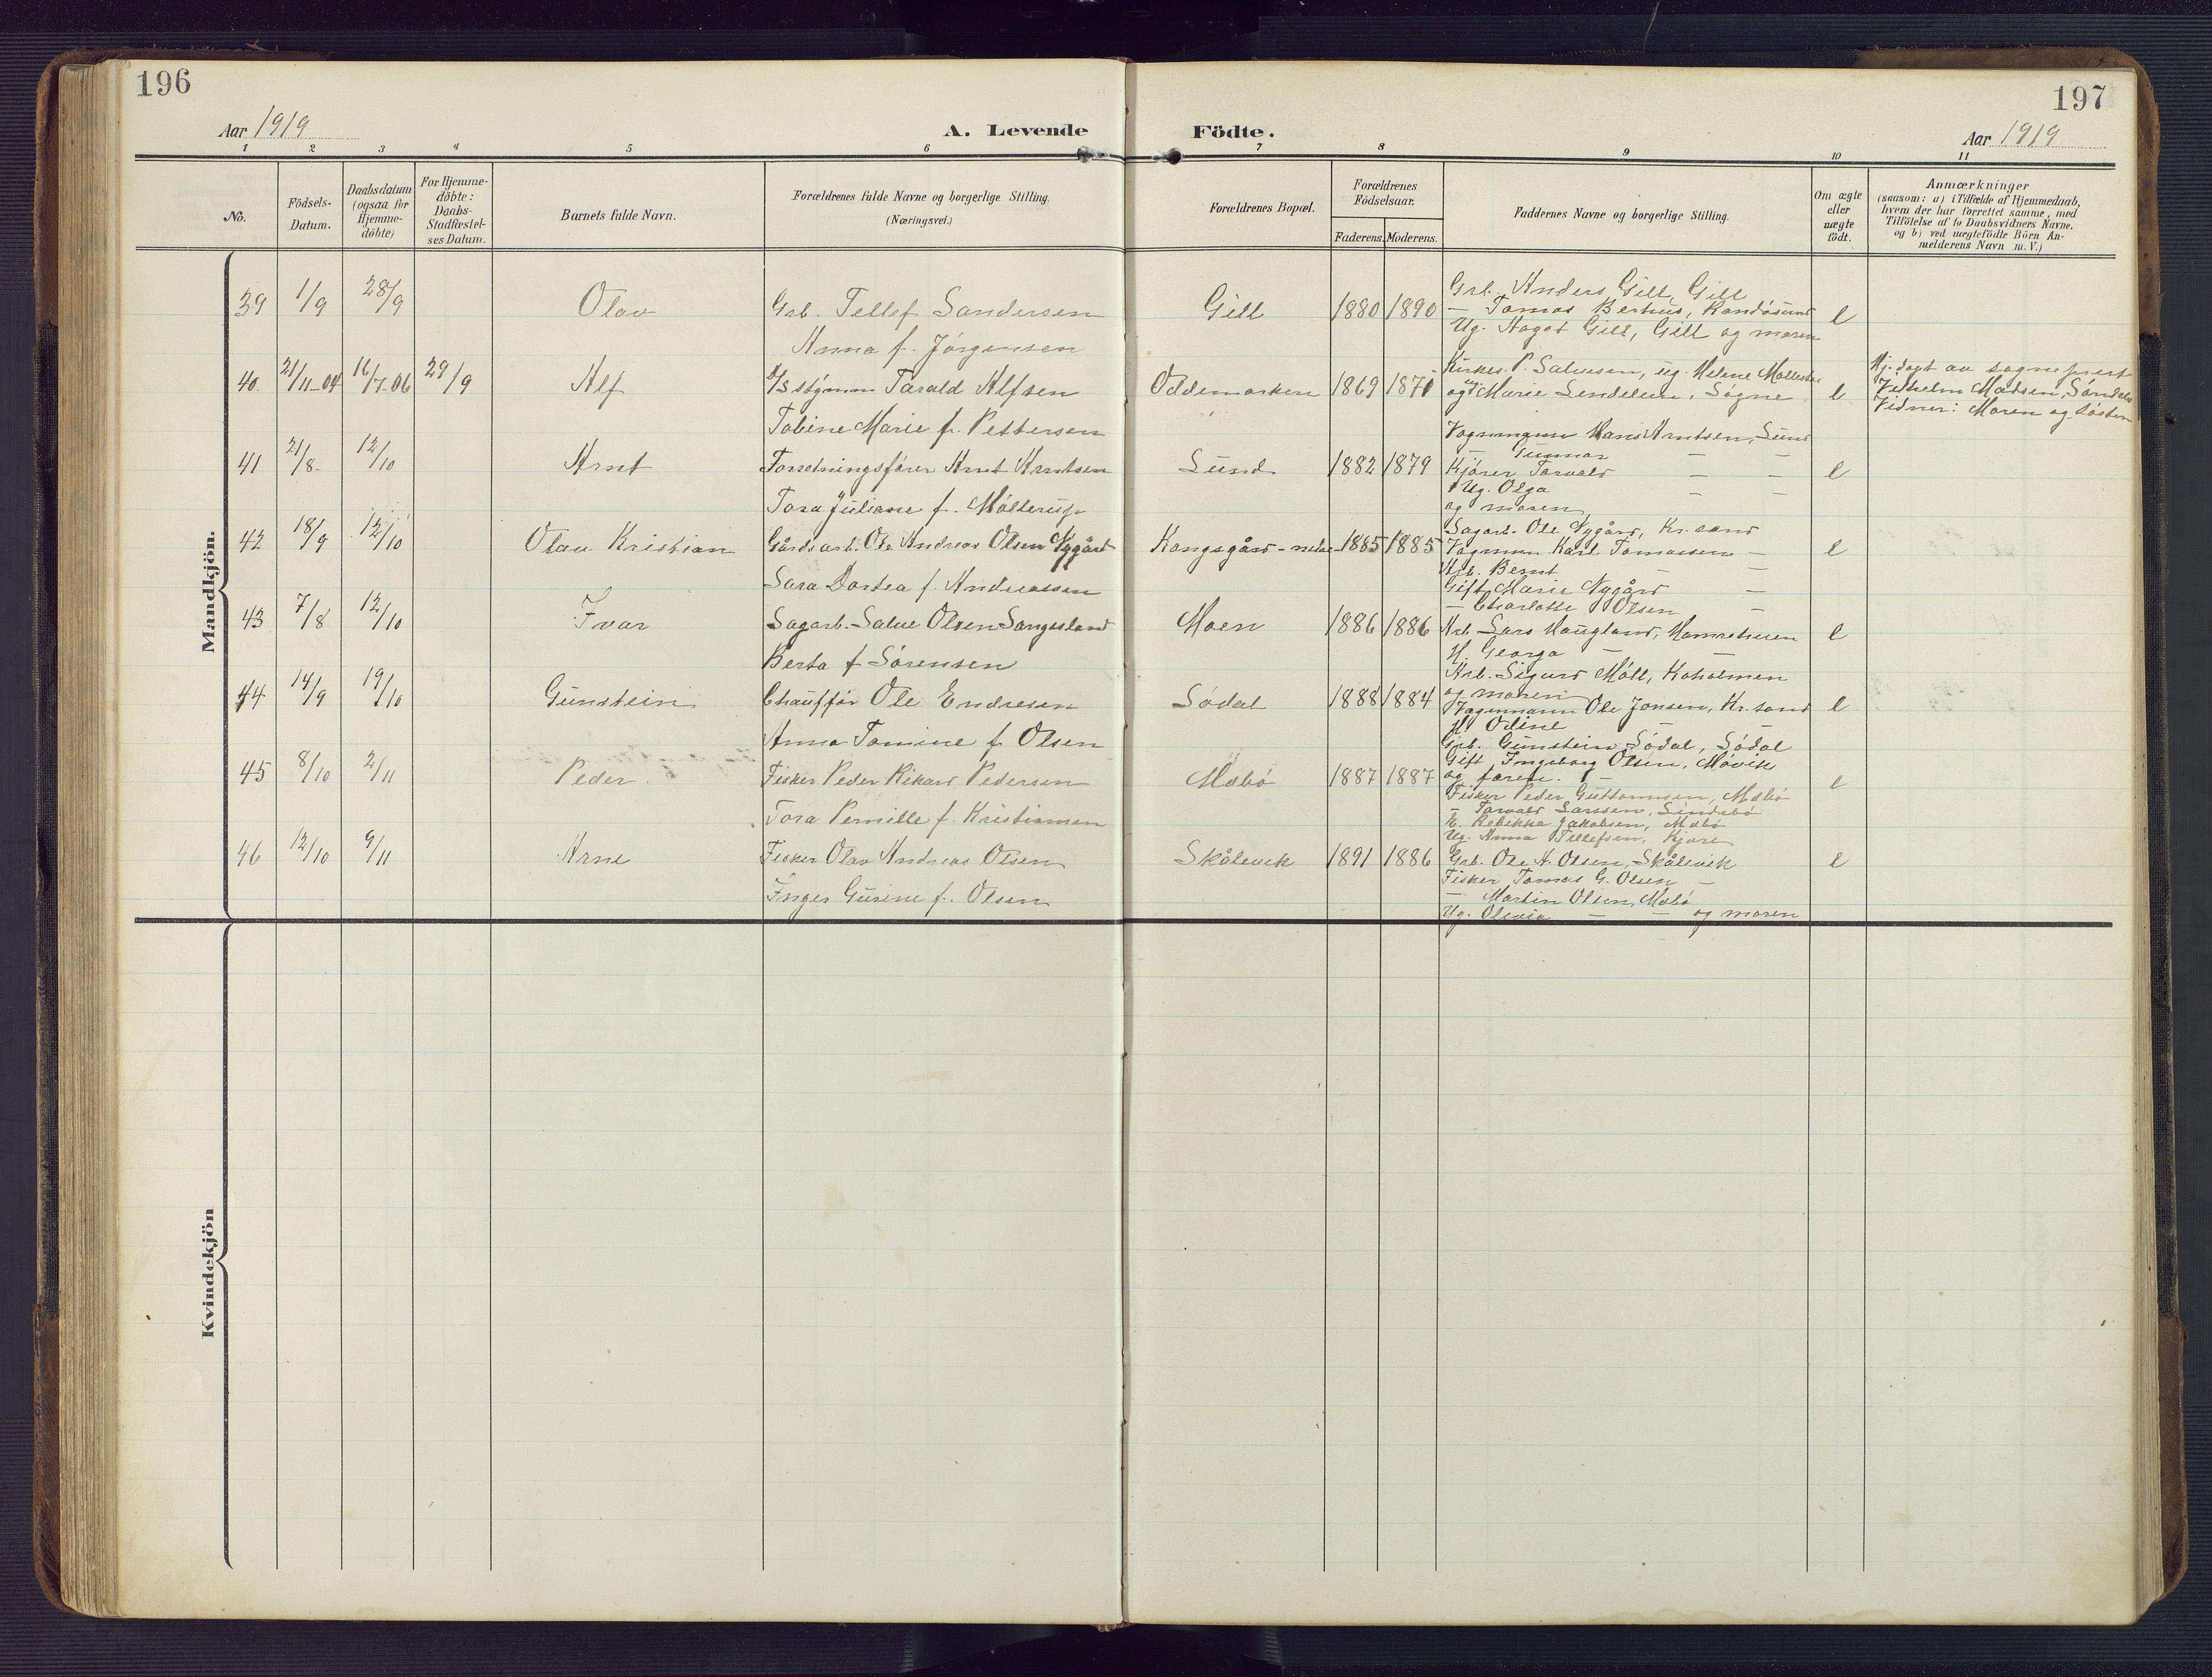 196
197
Aar 1919
A. Levende
Födte.
Aar 1919
1 2 3 4 5 6 7 8 9 10 11
No.
Födsels-
Datum.
Daabsdatum
(ogsaa for
Hjemme-
döbte)
For Hjemme-
döbte:
Daabs-
Stadfæstel-
ses Datum.
Barnets fulde Navn.
Forældrenes fulde Navne og borgerlige Stilling.
(Næringsvei.)
Forældrenes Bopæl.
Forældrenes
Födselsaar.
Faderens. Moderens.
Faddernes Navne og borgerlige Stilling.
Om ægte
eller
uægte
födt.
Anmærkninger
(saasom: a) i Tilfælde af Hjemmedaab,
hvem der har forrettet samme, med
Tilföielse af to Daabsvidners Navne.
og b) ved uægtefödte Börn An-
melderens Navn m.V.)
Mandkjön.
39 1/9 28/9 Olav Grb. Tellef Sandersen Gill 1880 1890 e
Anna f. Jörgensen
Grb. Anders Gill, Gill
— Tomas Berhus, Randösund
Ug. Aagot Gill, Gill og moren
40 21/11-04 16/7-06 29/9 Alf D/S styrm Tarald Alfsen Oddemarken 1869 1871 e
Tobine Marie f. Pettersen
Kirkes. P. Salvesen, ug. Helene
og Marie Lendelund, Søgne
Hj. døpt av sogneprest
Vilhelm Madsen,
Vidner: Moren og søsteren
41 21/8 12/10 Arnt Forretningsfører Arnt Arntsen Lund 1882 1879 e
Tora Juliane f. Møllerup
Vognmann Hans Arntsen, Lund
— Gunnar — —
Kjører Torvald — —
Ug. Olga — —
og moren
42 18/9 12/10 Olav Kristian Gårdsarb. Ole Andreas Olsen Nygård Kongsgård 1885 1885 e
Sara Dortea f. Andreassen
Sagarb. Ole Nygård, Kr.sand
Vognmn Karl Tomassen —
Arb. Bernt — —
Gift Marie Nygård —
— Charlotte Olsen —
43 7/8 12/10 Ivar Sagarb. Salve Olsen Sangesland Moen 1886 1886 e
Berta f Sörensen
Arb Lars Haugland,
H. Georga —
Arb. Sigurd Möll, Koholmen
og moren
44 14/9 19/10 Gunstein Chauffør Ole Endresen Södal 1888 1884 e
Anna Tomine f. Olsen
Vognmann Ole Jonsen, Kr.sand
H. Odine — —
Grb. Gunstein Södal, Södal
Gift Ingeborg Olsen, Møvik
og faren. —
45 8/10 2/11 Peder. Fisker Peder Rikard Pedersen Mæbö 1887 1887 e
Tora Pernille f. Kristiansen
Fisker Peder Guttormsen, Mæbö
— Torvald Larssen,
E. Rebekka Jakobsen, Mæbö
Ug. Anna Tellefsen, Kjøre
46 12/10 9/11 Arne Fisker Olav Andreas Olsen Skålevik 1891 1886 e
Inger Gurine f. Olsen
Grb. Ole A. Olsen, Skålevik
Fisker Tomas G. Olsen —
— Martin Olsen, Mæbö
Ug. Olivia — — og moren
Kvindekjön